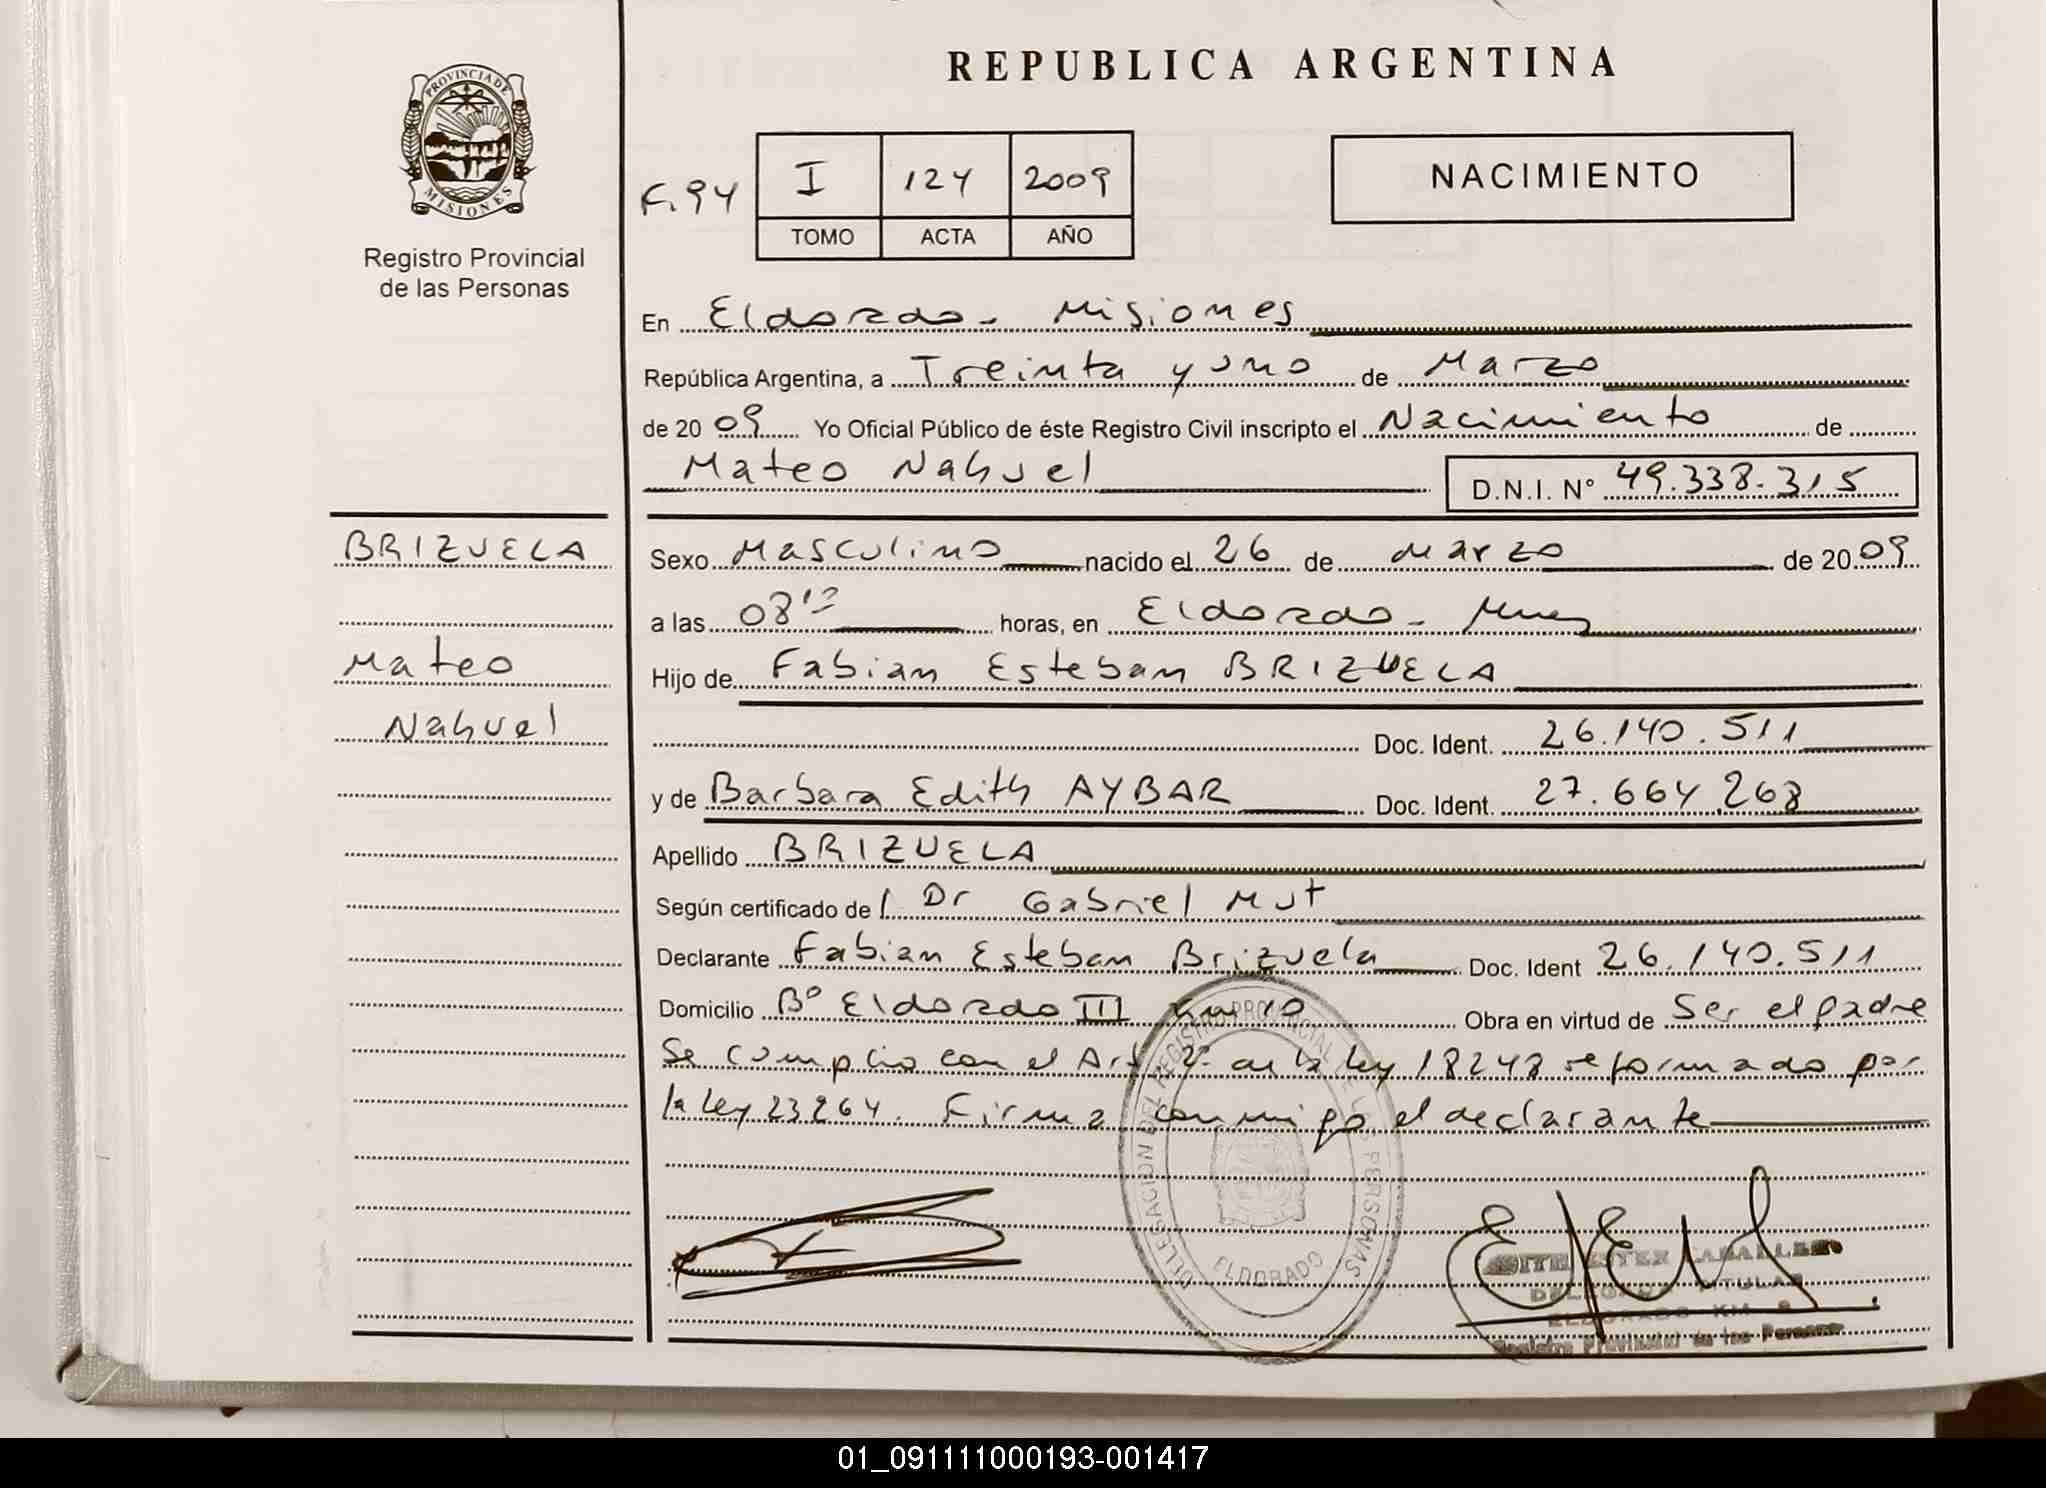 REPUBLICA ARGENTINA
PROVINCIA DE
MISIONES
Registro Provincial
de las Personas
F. 94
I 124 2009
TOMO ACTA AÑO
NACIMIENTO
En Eldorado - Misiones
República Argentina, a Treinta y uno de Marzo
de 2009 Yo Oficial Público de éste Registro Civil inscripto el Nacimiento de
Mateo Nahuel D.N.I. Nº 49.338.315
BRIZUELA
Mateo
Nahuel
Sexo Masculino nacido el 26 de Marzo de 2009
a las 08 horas, en Eldorado - Mnes
Hijo de Fabian Esteban BRIZUELA
Doc. Ident. 26.140.511
y de Barbara Edith AYBAR Doc. Ident. 27.664.268
Apellido BRIZUELA
Según certificado de l Dr Gabriel Mut
Declarante Fabian Esteban Brizuela Doc. Ident 26.140.511
Domicilio Bº Eldorado III Km 10 Obra en virtud de Ser el padre
Se cumplio con el Art 2º de la ley 18248 reformado por
la Ley 23264. Firma conmigo el declarante
DELEGACION DEL REGISTRO PROVINCIAL DE LAS PERSONAS
ELDORADO
ESTER CABALLERO
DELEGADA TITULAR
ELDORADO KM 9
Registro Provincial de las Personas
01_091111000193-001417